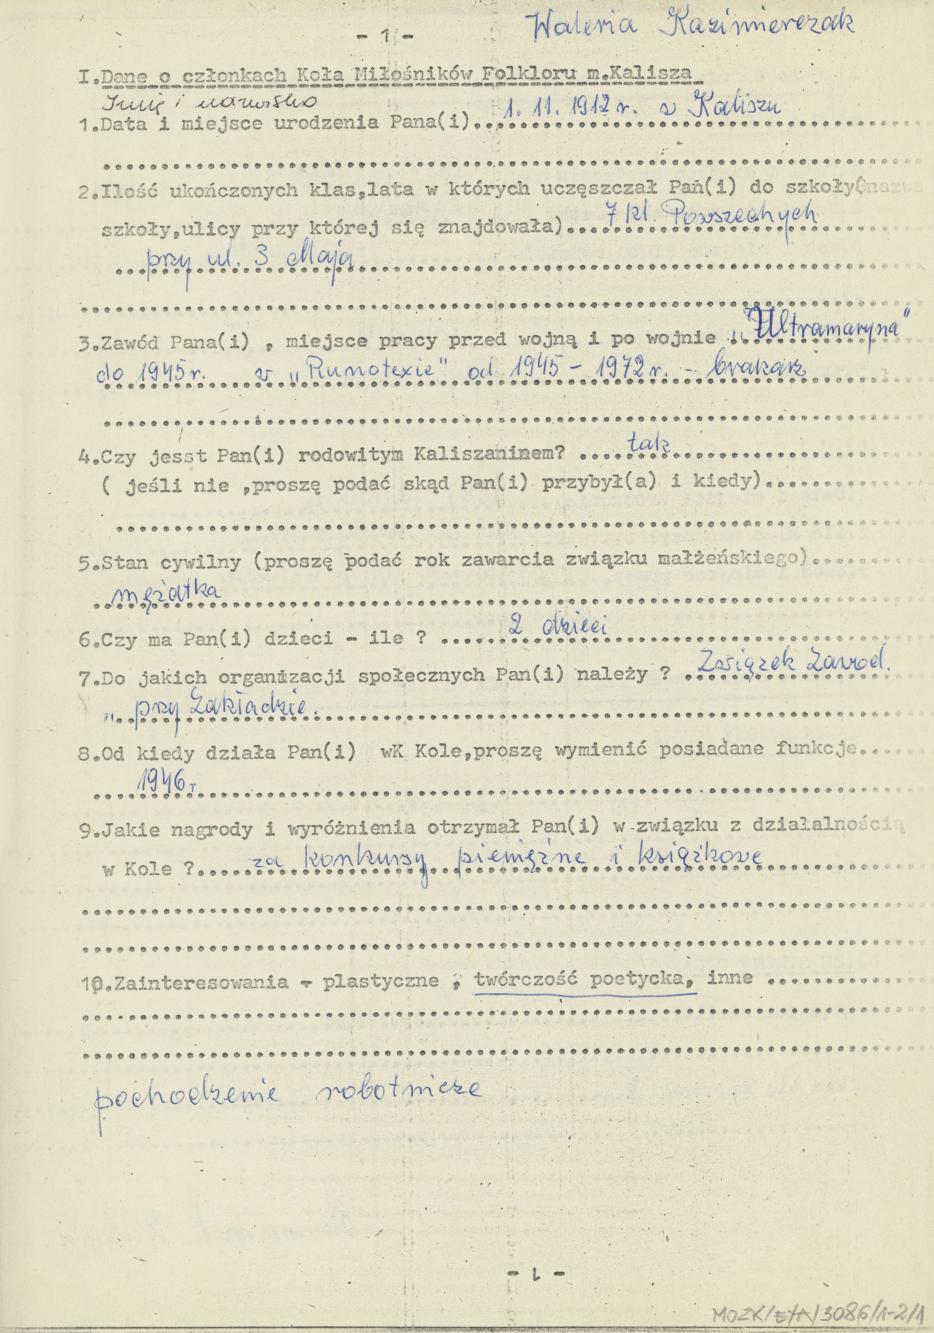 Waleria Kazimierczak
- 1 -
I.Dane o członkach Koła Miłośników Folkloru m.Kalisza
Imię i nazwisko
1.Data i miejsce urodzenia Pana(i)... 1. 11. 1912 r. w Kaliszu
2.Ilość ukończonych klas,lata w których uczęszczał Pan(i) do szkoły(nazwa
szkoły,ulicy przy której się znajdowała)... 7 kl. Powszechnych
przy ul. 3 Maja
3.Zawód Pana(i) , miejsce pracy przed wojną i po wojnie „Ultramaryna"
do 1945r. w „Runotexie" od 1945 - 1972 r. - brakarz
4.Czy jesst Pan(i) rodowitym Kaliszaninem? ... tak
( jeśli nie ,proszę podać skąd Pan(i) przybył(a) i kiedy)...
5.Stan cywilny (proszę podać rok zawarcia związku małżeńskiego)...
mężatka
6.Czy ma Pan(i) dzieci - ile ? ... 2 dzieci
7.Do jakich organizacji społecznych Pan(i) należy ? Związek Zawod.
„ przy Zakładzie.
8.Od kiedy działa Pan(i) wK Kole,proszę wymienić posiadane funkcje...
1946r
9.Jakie nagrody i wyróżnienia otrzymał Pan(i) w związku z działalnością
w Kole ?... za konkursy pieniężne i książkowe
10.Zainteresowania - plastyczne , twórczość poetycka, inne ...
pochodzenie robotnicze
- 1 -
MOZK/E/A/3086/1-2/1